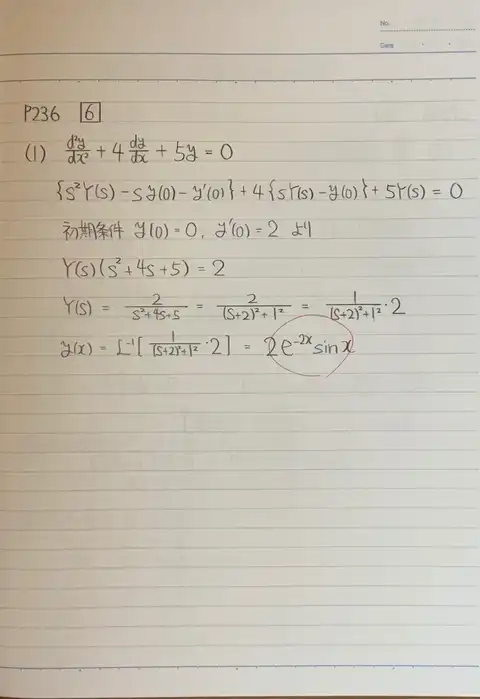 No.
Date
P236 [6]
(1) d²y/dx² + 4 dy/dx + 5y = 0
{s²Y(s) - sy(0) - y'(0)} + 4{sY(s) - y(0)} + 5Y(s) = 0
初期条件 y(0) = 0, y'(0) = 2 より
Y(s)(s² + 4s + 5) = 2
Y(s) = 2/(s²+4s+5) = 2/((s+2)²+1²) = 1/((s+2)²+1²)・2
y(x) = L⁻¹[1/((s+2)²+1²)・2] = 2e⁻²ˣ sin x